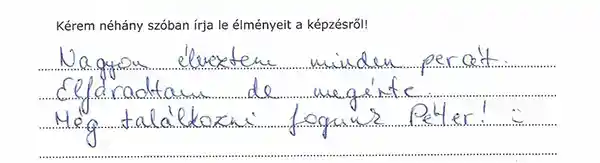 Kérem néhány szóban írja le élményeit a képzésről!
Nagyon élveztem minden percét.
Elfáradtam de megérte.
Még találkozni fogunk Péter! :)